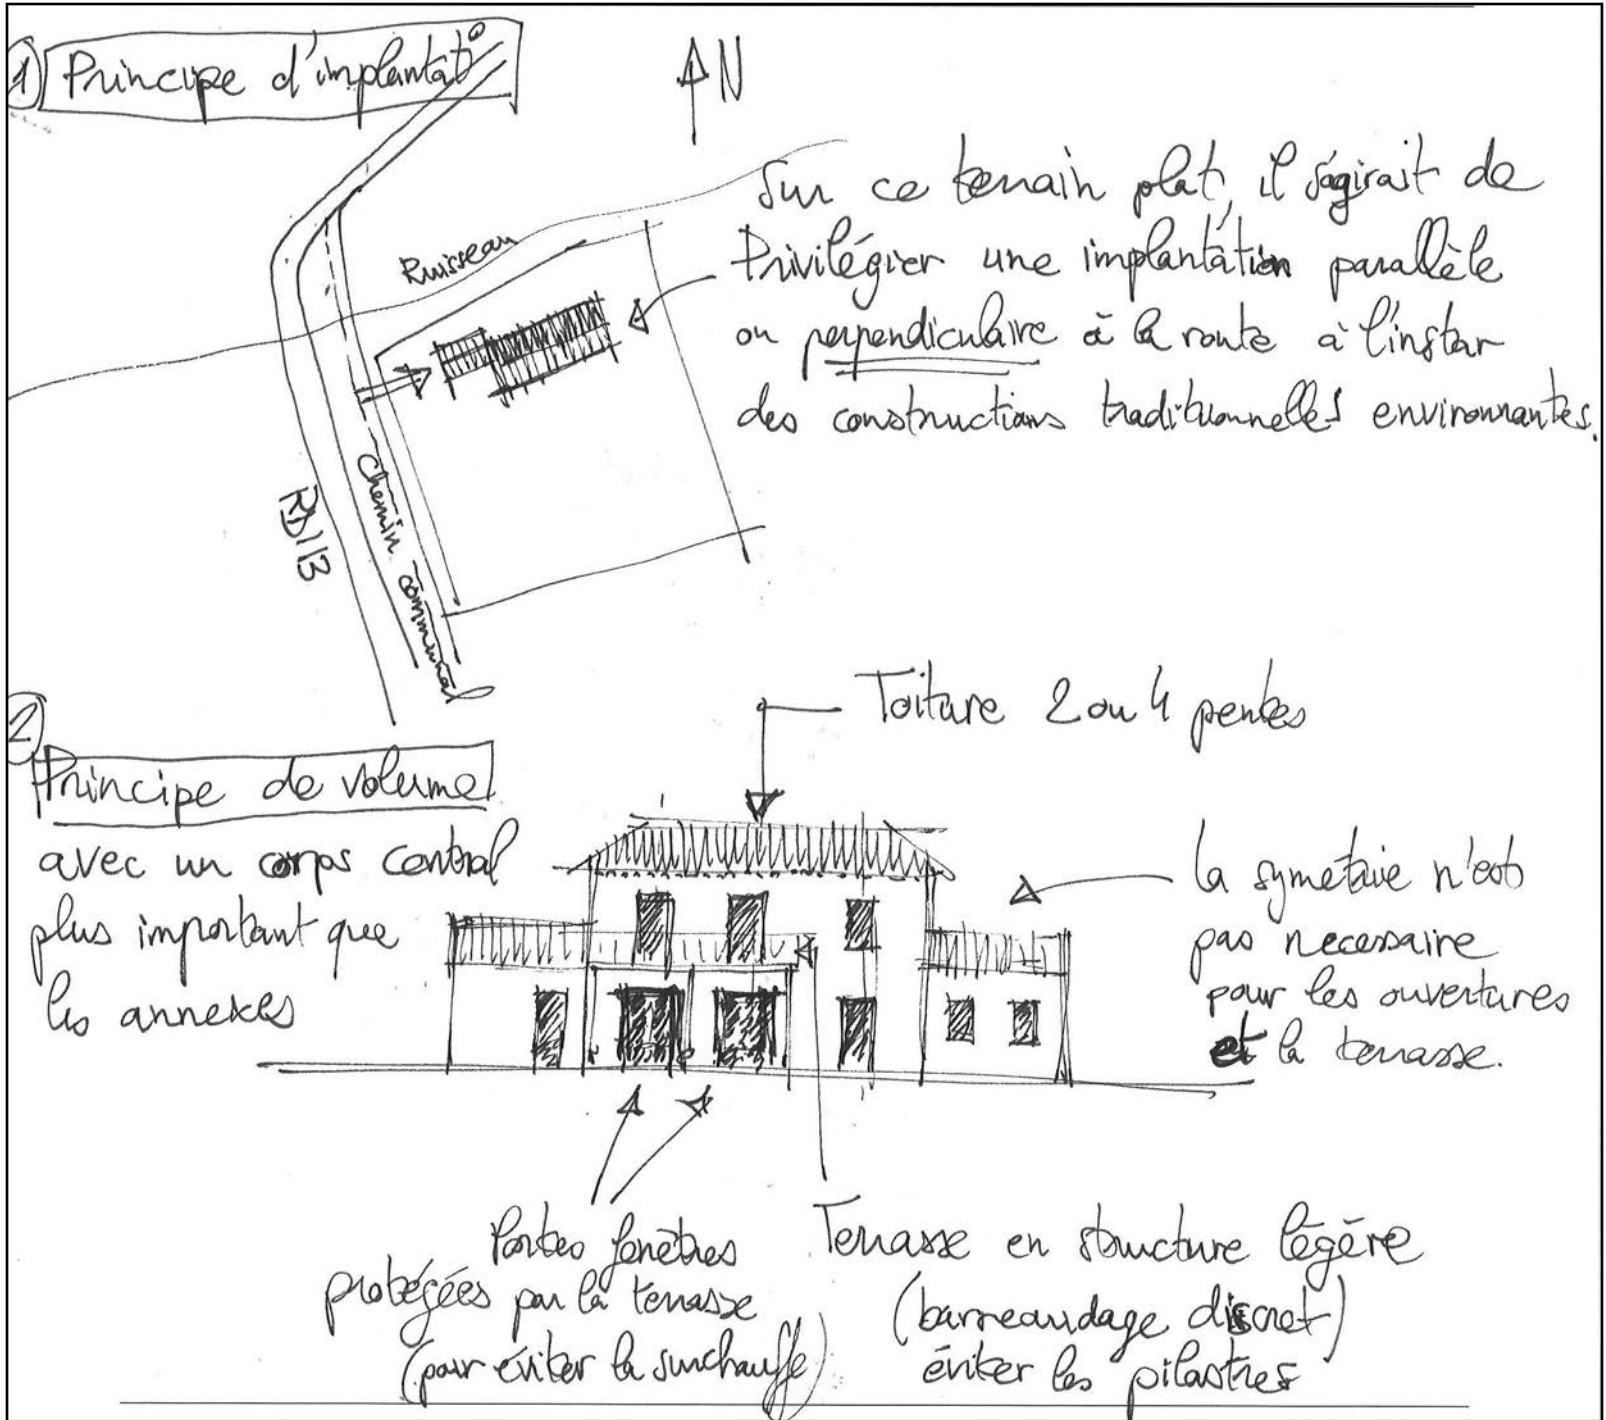 ① Principe d'implantat°
N
Sur ce terrain plat, il s'agirait de
Privilégier une implantation parallèle
ou perpendiculaire à la route à l'instar
des constructions traditionnelles environnantes.
Ruisseau
Chemin communal
RD113
② Principe de volume
avec un corps central
plus important que
les annexes
Toiture 2 ou 4 pentes
la symetrie n'est
pas necessaire
pour les ouvertures
et la terrasse.
Portes fenêtres
protégées par la terrasse
(pour éviter la surchauffe)
Terrasse en structure légère
(barreaudage discret)
éviter les pilastres